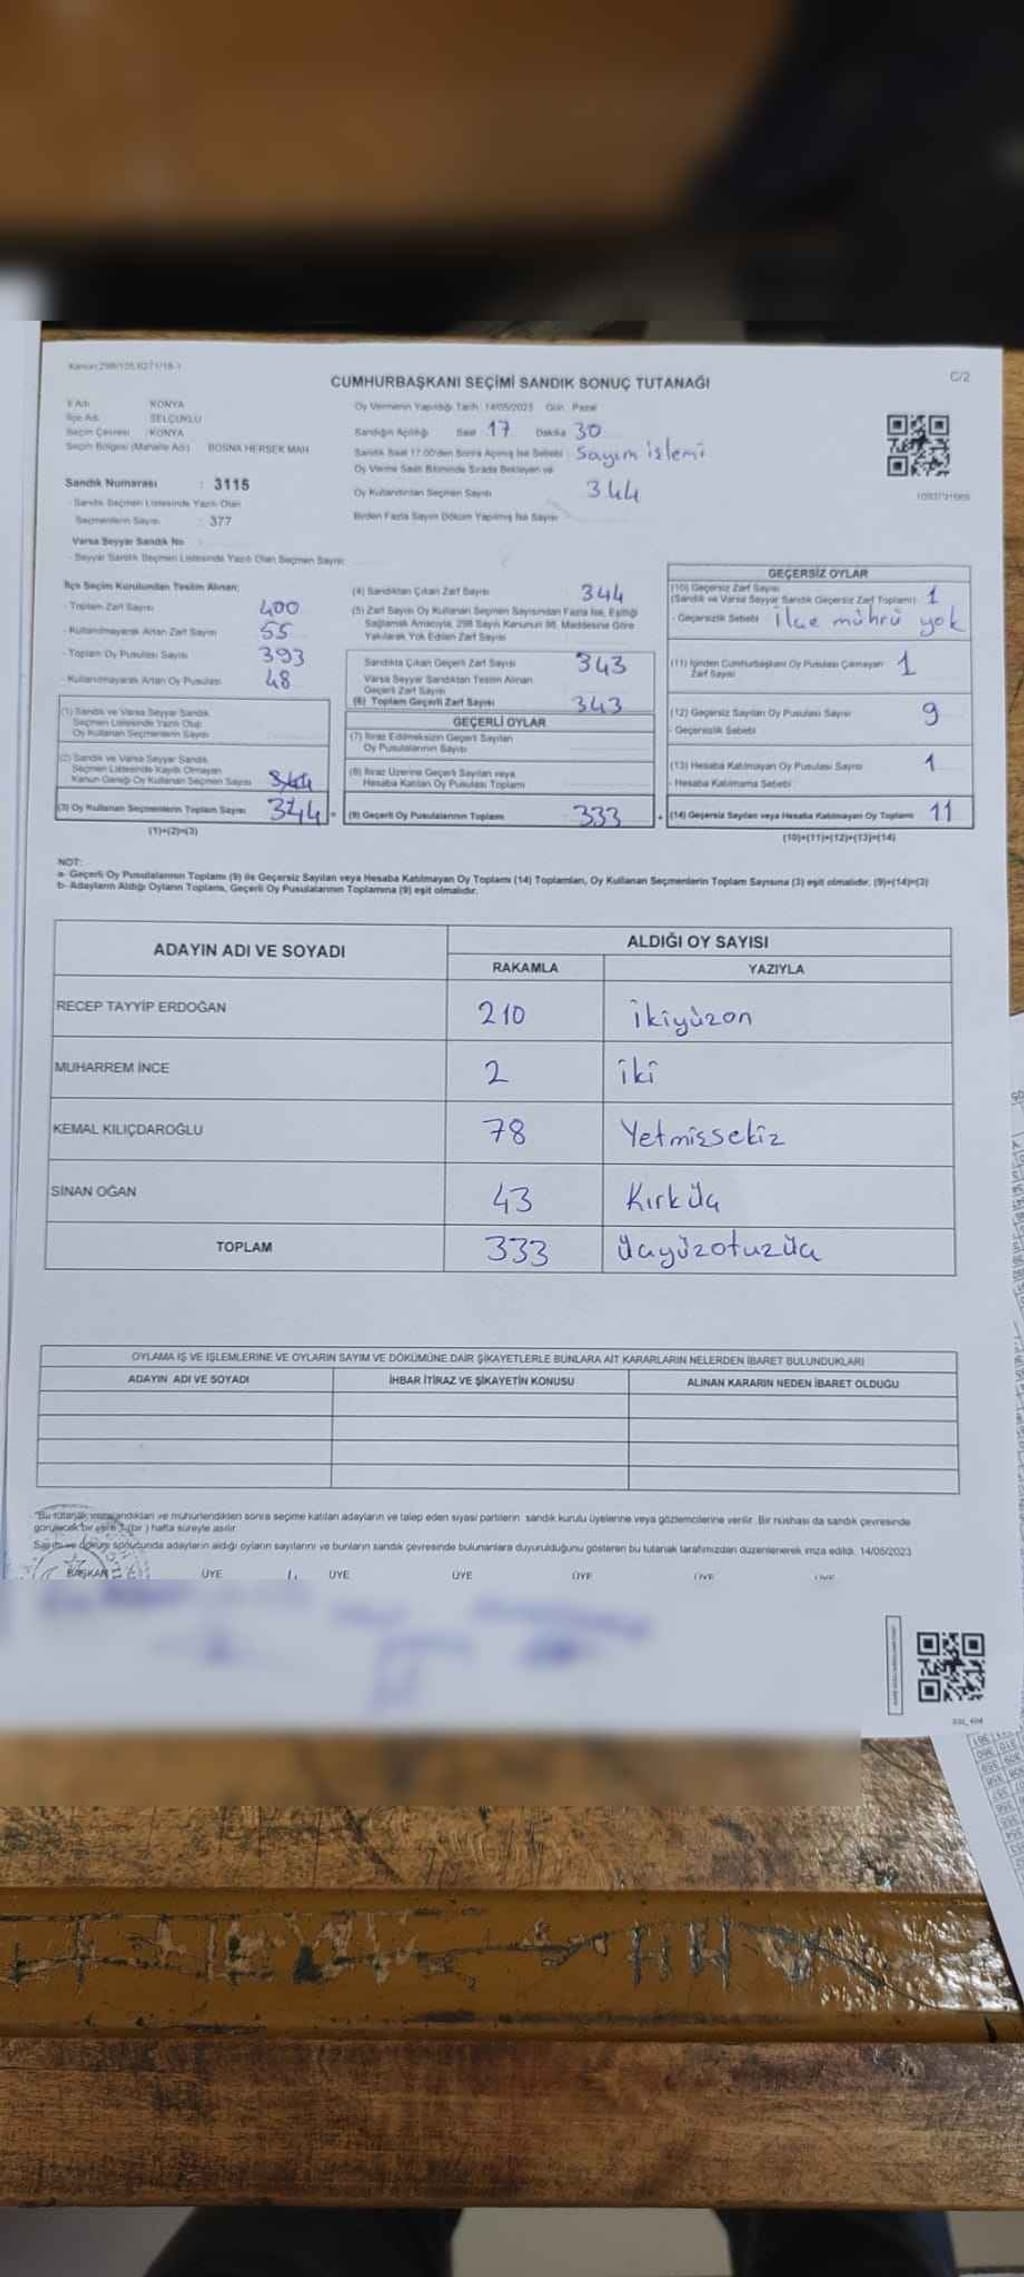 Kanun:298/105,6271/18-1
C/2
CUMHURBAŞKANI SEÇİMİ SANDIK SONUÇ TUTANAĞI
İl Adı : KONYA
İlçe Adı : SELÇUKLU
Seçim Çevresi : KONYA
Seçim Bölgesi (Mahalle Adı) : BOSNA HERSEK MAH.
Sandık Numarası : 3115
Sandık Seçmen Listesinde Yazılı Olan
Seçmenlerin Sayısı : 377
Varsa Seyyar Sandık No
Seyyar Sandık Seçmen Listesinde Yazılı Olan Seçmen Sayısı:
Oy Vermenin Yapıldığı Tarih: 14/05/2023 Gün: Pazar
Sandığın Açıldığı Saat 17 Dakika 30
Sandık Saat 17.00'den Sonra Açılmış İse Sebebi : Sayım işlemi
Oy Verme Saati Bitiminde Sırada Bekleyen ve
Oy Kullandırılan Seçmen Sayısı 344
Birden Fazla Sayım Döküm Yapılmış İse Sayısı
İlçe Seçim Kurulundan Teslim Alınan:
- Toplam Zarf Sayısı 400
- Kullanılmayarak Artan Zarf Sayısı 55
- Toplam Oy Pusulası Sayısı 393
- Kullanılmayarak Artan Oy Pusulası 48
(1) Sandık ve Varsa Seyyar Sandık
Seçmen Listesinde Yazılı Olup
Oy Kullanan Seçmenlerin Sayısı
(2) Sandık ve Varsa Seyyar Sandık
Seçmen Listesinde Kayıtlı Olmayan
Kanun Gereği Oy Kullanan Seçmen Sayısı 344
(3) Oy Kullanan Seçmenlerin Toplam Sayısı 344
(1)+(2)=(3)
(4) Sandıktan Çıkan Zarf Sayısı 344
(5) Zarf Sayısı Oy Kullanan Seçmen Sayısından Fazla İse, Eşitliği
Sağlamak Amacıyla, 298 Sayılı Kanunun 98. Maddesine Göre
Yakılarak Yok Edilen Zarf Sayısı
Sandıkta Çıkan Geçerli Zarf Sayısı 343
Varsa Seyyar Sandıktan Teslim Alınan
Geçerli Zarf Sayısı
(6) Toplam Geçerli Zarf Sayısı 343
GEÇERLİ OYLAR
(7) İtiraz Edilmeksizin Geçerli Sayılan
Oy Pusulalarının Sayısı
(8) İtiraz Üzerine Geçerli Sayılan veya
Hesaba Katılan Oy Pusulaları Toplamı
(9) Geçerli Oy Pusulalarının Toplamı 333
GEÇERSİZ OYLAR
(10) Geçersiz Zarf Sayısı
(Sandık ve Varsa Seyyar Sandık Geçersiz Zarf Toplamı) 1
- Geçersizlik Sebebi : ilçe mührü yok
(11) İçinden Cumhurbaşkanı Oy Pusulası Çıkmayan 1
Zarf Sayısı
(12) Geçersiz Sayılan Oy Pusulası Sayısı 9
- Geçersizlik Sebebi
(13) Hesaba Katılmayan Oy Pusulası Sayısı 1
- Hesaba Katılmama Sebebi
(14) Geçersiz Sayılan veya Hesaba Katılmayan Oy Toplamı 11
(10)+(11)+(12)+(13)=(14)
NOT:
a- Geçerli Oy Pusulalarının Toplamı (9) ile Geçersiz Sayılan veya Hesaba Katılmayan Oy Toplamı (14) Toplamları, Oy Kullanan Seçmenlerin Toplam Sayısına (3) eşit olmalıdır. (9)+(14)=(3)
b- Adayların Aldığı Oyların Toplamı, Geçerli Oy Pusulalarının Toplamına (9) eşit olmalıdır.
ADAYIN ADI VE SOYADI
ALDIĞI OY SAYISI
RAKAMLA YAZIYLA
RECEP TAYYİP ERDOĞAN 210 ikiyüzon
MUHARREM İNCE 2 iki
KEMAL KILIÇDAROĞLU 78 Yetmişsekiz
SİNAN OĞAN 43 Kırküç
TOPLAM 333 üçyüzotuzüç
OYLAMA İŞ VE İŞLEMLERİNE VE OYLARIN SAYIM VE DÖKÜMÜNE DAİR ŞİKAYETLERLE BUNLARA AİT KARARLARIN NELERDEN İBARET BULUNDUKLARI
ADAYIN ADI VE SOYADI İHBAR İTİRAZ VE ŞİKAYETİN KONUSU ALINAN KARARIN NEDEN İBARET OLDUĞU
Bu tutanak imzalandıktan ve mühürlendikten sonra seçime katılan adayların ve talep eden siyasi partilerin sandık kurulu üyelerine veya gözlemcilerine verilir. Bir nüshası da sandık çevresinde
görülecek bir yere 1 (bir) hafta süreyle asılır.
Sayım ve döküm sonucunda adayların aldığı oyların sayılarını ve bunların sandık çevresinde bulunanlara duyurulduğunu gösteren bu tutanak tarafımızdan düzenlenerek imza edildi. 14/05/2023
BAŞKAN ÜYE ÜYE ÜYE ÜYE ÜYE ÜYE